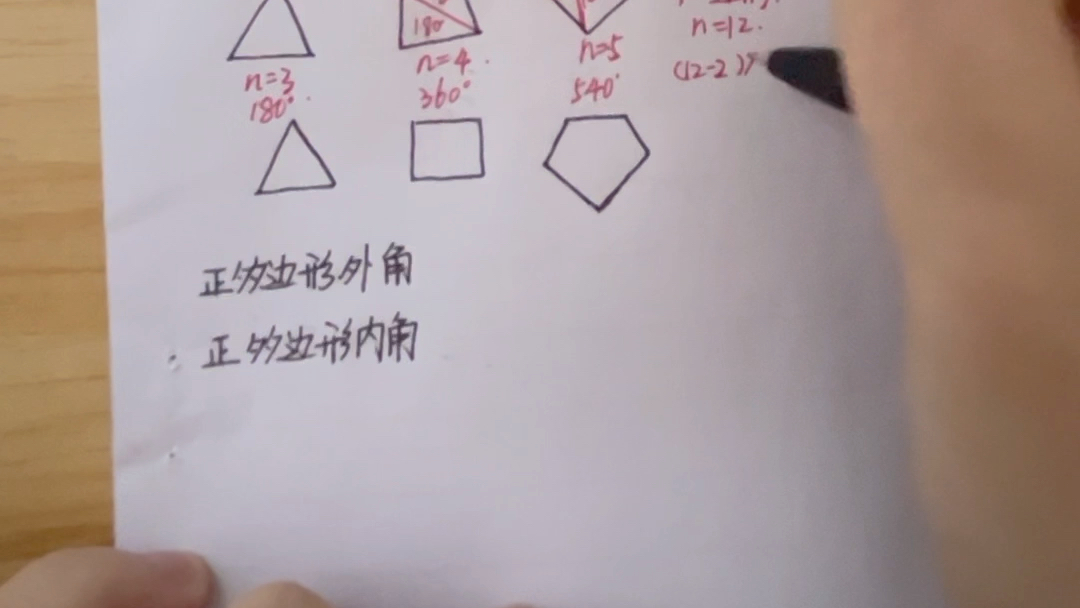 180
n=3
n=4
n=5
n=12.
180°
360°
540°
(12-2)×
正多边形外角
正多边形内角